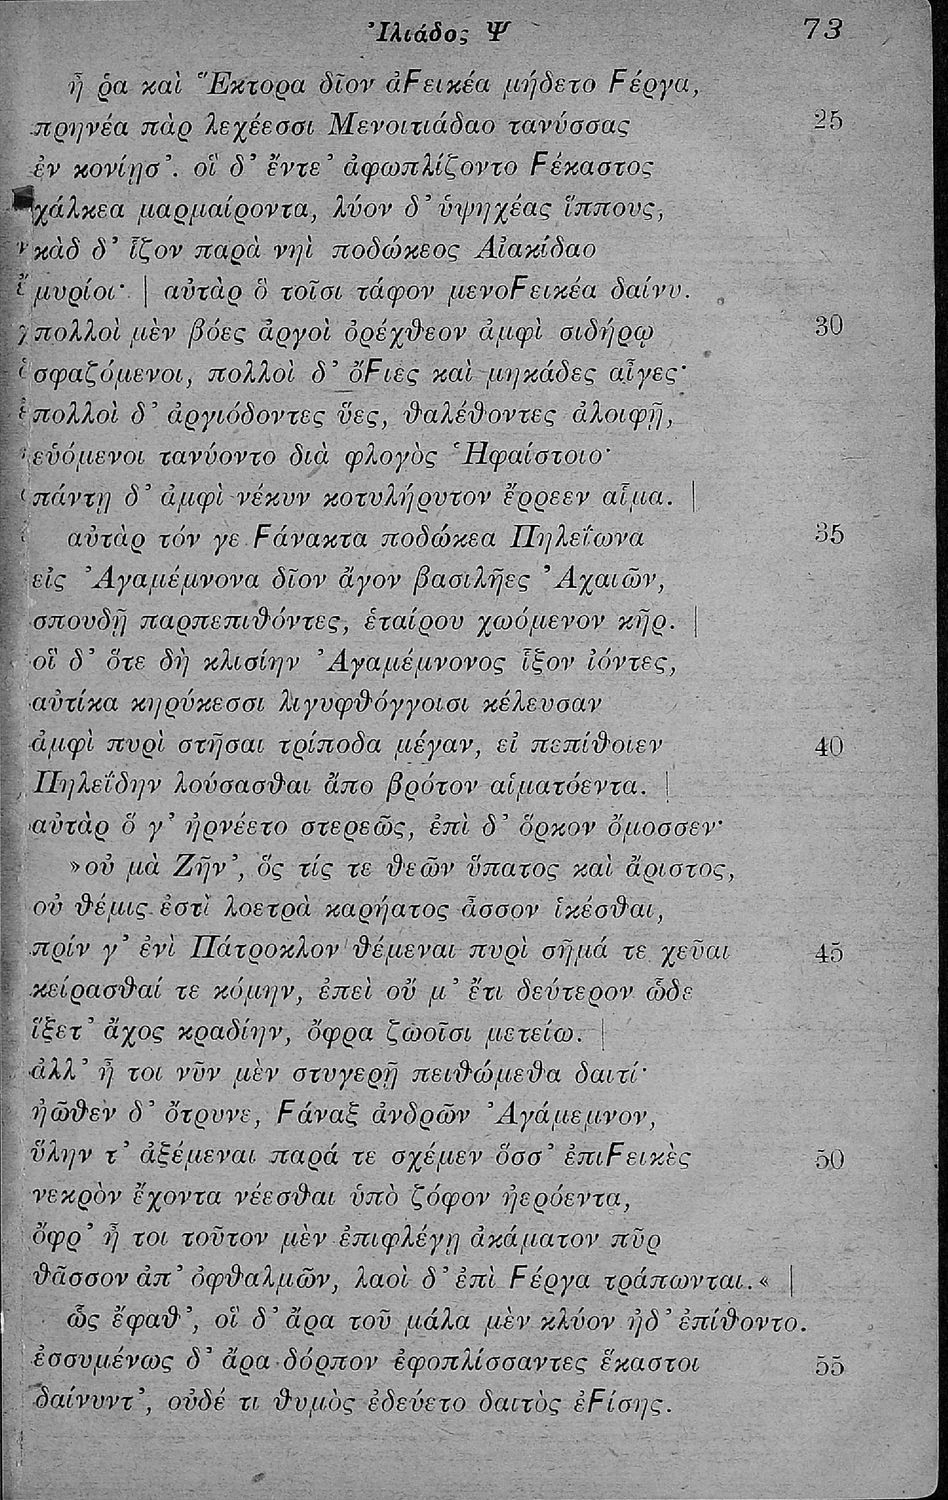 Ἰλιάδος Ψ 73
ἦ ῥα καὶ Ἕκτορα δῖον ἀϜεικέα μήδετο Ϝέργα,
πρηνέα πὰρ λεχέεσσι Μενοιτιάδαο τανύσσας 25
ἐν κονίῃσ’. οἳ δ’ ἔντε’ ἀφωπλίζοντο Ϝέκαστος
χάλκεα μαρμαίροντα, λύον δ’ ὑψηχέας ἵππους,
κὰδ δ’ ἷζον παρὰ νηὶ ποδώκεος Αἰακίδαο
μυρίοι· | αὐτὰρ ὃ τοῖσι τάφον μενοϜεικέα δαίνυ.
πολλοὶ μὲν βόες ἀργοὶ ὀρέχθεον ἀμφὶ σιδήρῳ 30
σφαζόμενοι, πολλοὶ δ’ ὄϜιες καὶ μηκάδες αἶγες·
πολλοὶ δ’ ἀργιόδοντες ὕες, θαλέθοντες ἀλοιφῇ,
εὑόμενοι τανύοντο διὰ φλογὸς Ἡφαίστοιο·
πάντῃ δ’ ἀμφὶ νέκυν κοτυλήρυτον ἔρρεεν αἷμα. |
αὐτὰρ τόν γε Ϝάνακτα ποδώκεα Πηλεΐωνα 35
εἰς Ἀγαμέμνονα δῖον ἄγον βασιλῆες Ἀχαιῶν,
σπουδῇ παρπεπιθόντες, ἑταίρου χωόμενον κῆρ. |
οἳ δ’ ὅτε δὴ κλισίην Ἀγαμέμνονος ἷξον ἰόντες,
αὐτίκα κηρύκεσσι λιγυφθόγγοισι κέλευσαν
ἀμφὶ πυρὶ στῆσαι τρίποδα μέγαν, εἰ πεπίθοιεν 40
Πηλεΐδην λούσασθαι ἄπο βρότον αἱματόεντα. |
αὐτὰρ ὅ γ’ ἠρνέετο στερεῶς, ἐπὶ δ’ ὅρκον ὄμοσσεν·
»οὐ μὰ Ζῆν’, ὅς τίς τε θεῶν ὕπατος καὶ ἄριστος,
οὐ θέμις ἐστὶ λοετρὰ καρήατος ἆσσον ἱκέσθαι,
πρίν γ’ ἐνὶ Πάτροκλον θέμεναι πυρὶ σῆμά τε χεῦαι 45
κείρασθαί τε κόμην, ἐπεὶ οὔ μ’ ἔτι δεύτερον ὧδε
ἵξετ’ ἄχος κραδίην, ὄφρα ζωοῖσι μετείω. |
ἀλλ’ ἦ τοι νῦν μὲν στυγερῇ πειθώμεθα δαιτί·
ἠῶθεν δ’ ὄτρυνε, Ϝάναξ ἀνδρῶν Ἀγάμεμνον,
ὕλην τ’ ἀξέμεναι παρά τε σχέμεν ὅσσ’ ἐπιϜεικὲς 50
νεκρὸν ἔχοντα νέεσθαι ὑπὸ ζόφον ἠερόεντα,
ὄφρ’ ἦ τοι τοῦτον μὲν ἐπιφλέγῃ ἀκάματον πῦρ
θᾶσσον ἀπ’ ὀφθαλμῶν, λαοὶ δ’ ἐπὶ Ϝέργα τράπωνται.« |
ὣς ἔφαθ’, οἳ δ’ ἄρα τοῦ μάλα μὲν κλύον ἠδ’ ἐπίθοντο.
ἐσσυμένως δ’ ἄρα δόρπον ἐφοπλίσσαντες ἕκαστοι 55
δαίνυντ’, οὐδέ τι θυμὸς ἐδεύετο δαιτὸς ἐϜίσης.